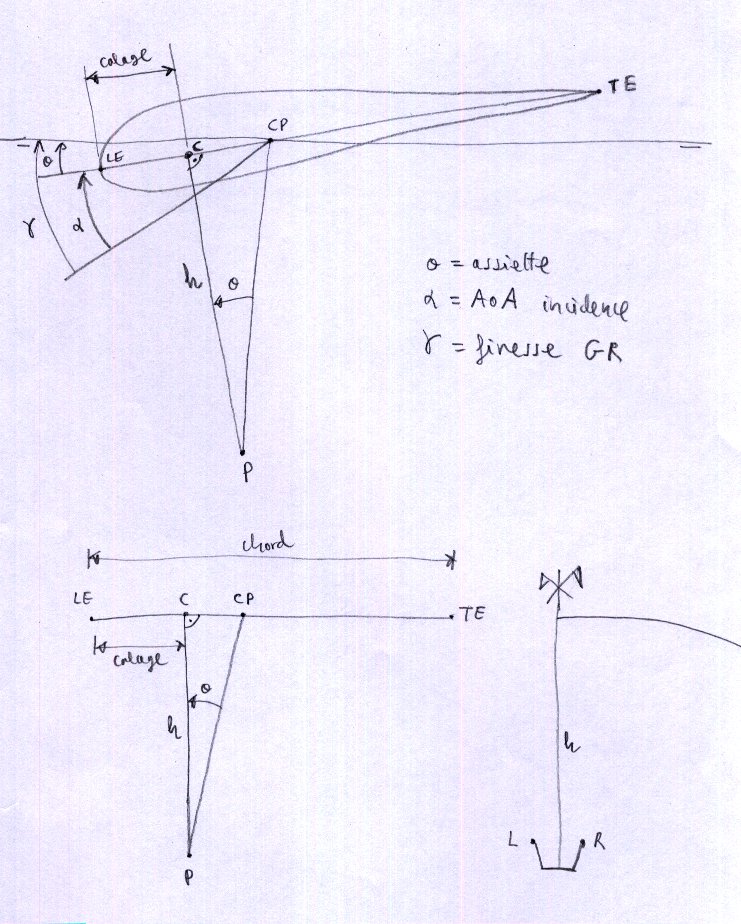 calage
TE
CP
C
θ
LE
α
γ
h
θ
θ = assiette
α = AoA incidence
γ = finesse GR
P
chord
LE
C
CP
TE
calage
θ
h
h
L
R
P